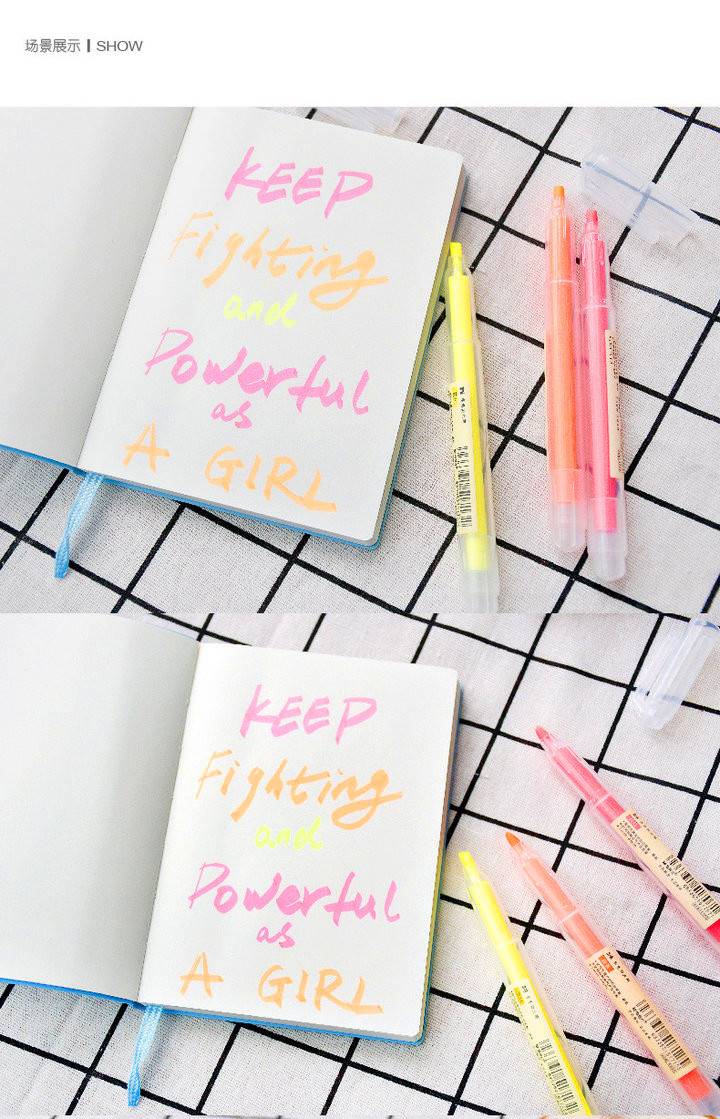 场景展示 | SHOW
KEEP
Fighting
and
Powerful
as
A GIRL
KEEP
Fighting
and
Powerful
as
A GIRL